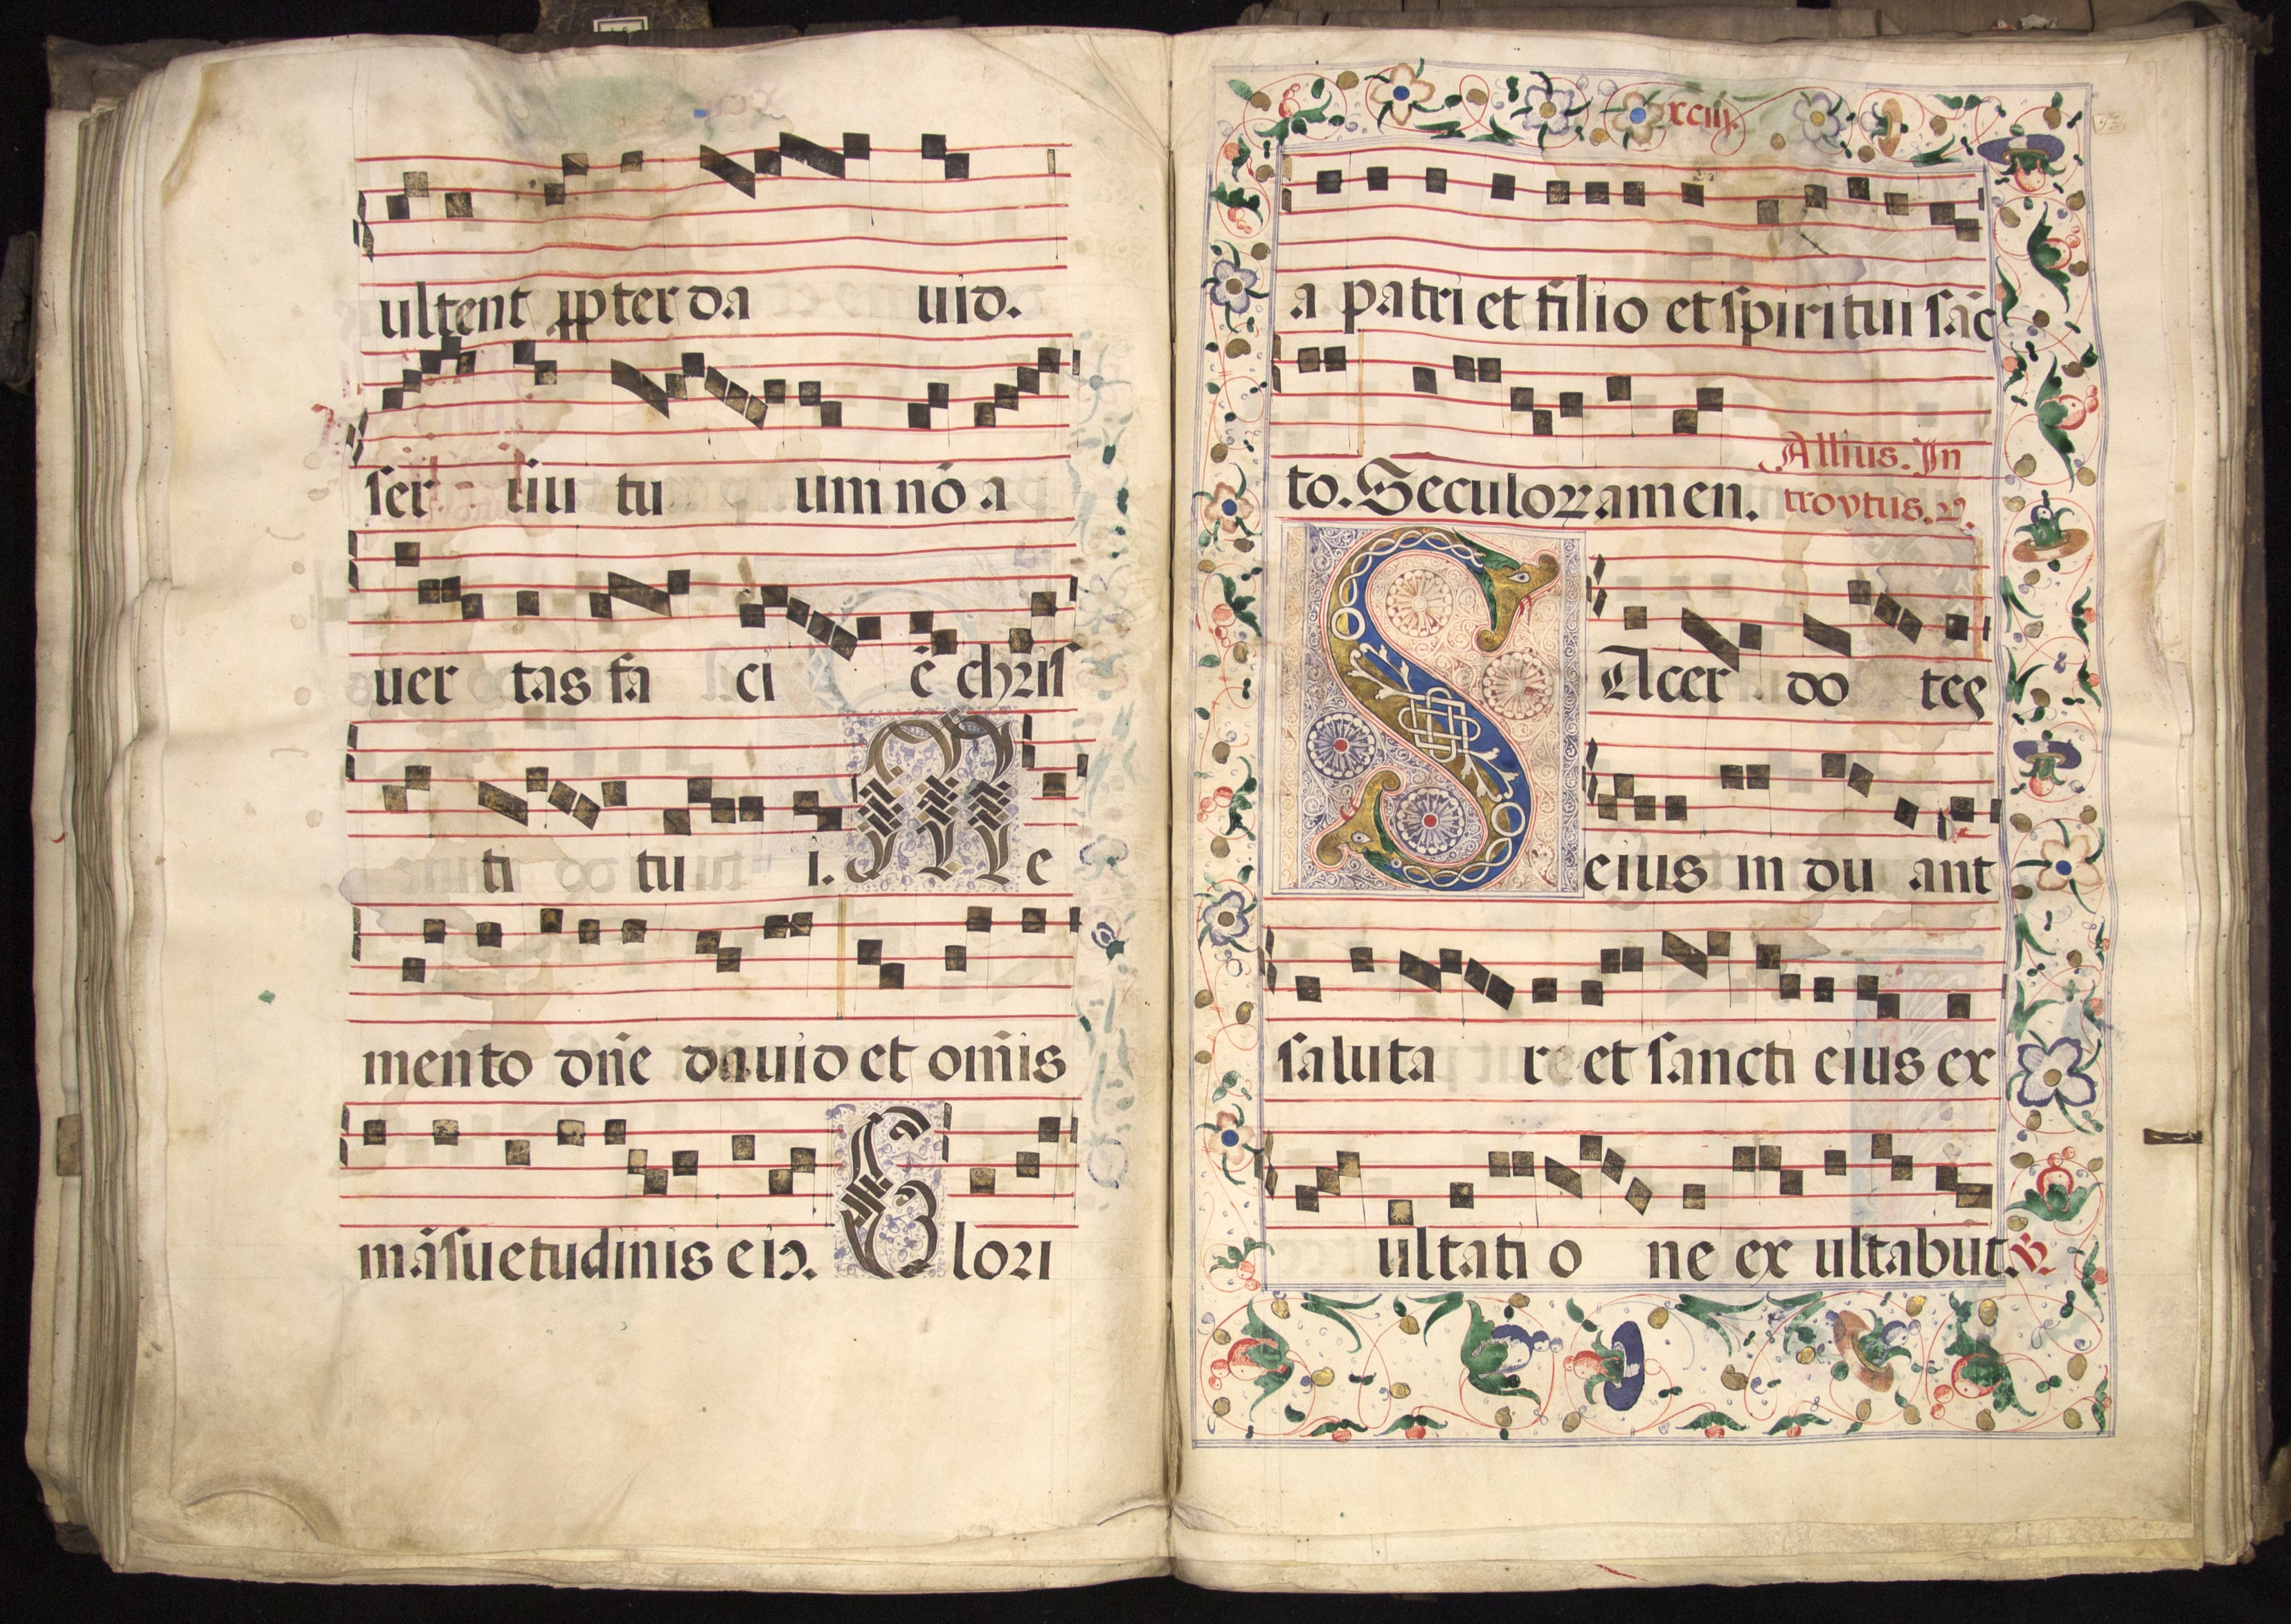 ultent ꝓpter da uid.
ser uiu tu um nō a
uer tas fa ci ē chris
ti tu i. Me
mento dn̄e dauid et om̄is
māsuetudinis eiꝰ. Glori
xciij.
a patri et filio et spiritui sāc
to. Seculoꝝ amen.
Allius. In
troytus. v.
SAcer do tes
eius in du ant
saluta re et sancti eius ex
ultati o ne ex ultabūt. R